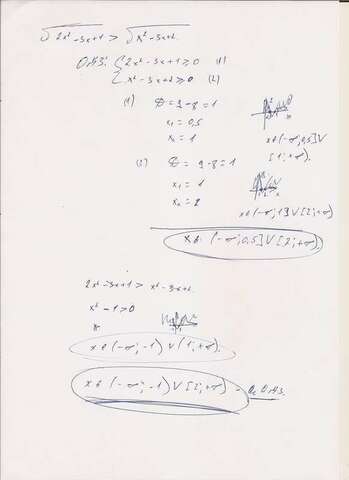 √2x² - 3x + 1 > √x² - 3x + 2
ОДЗ: { 2x² - 3x + 1 ≥ 0 (1)
{ x² - 3x + 2 ≥ 0 (2)
(1) D = 9 - 8 = 1
x₁ = 0,5
x₂ = 1
x ∈ (-∞; 0,5] V
[1; +∞).
(2) D = 9 - 8 = 1
x₁ = 1
x₂ = 2
x ∈ (-∞; 1] V [2; +∞)
x ∈ (-∞; 0,5] V [2; +∞).
2x² - 3x + 1 > x² - 3x + 2
x² - 1 > 0
x ∈ (-∞; -1) V (1; +∞).
x ∈ (-∞; -1) V [2; +∞) - ОДЗ.